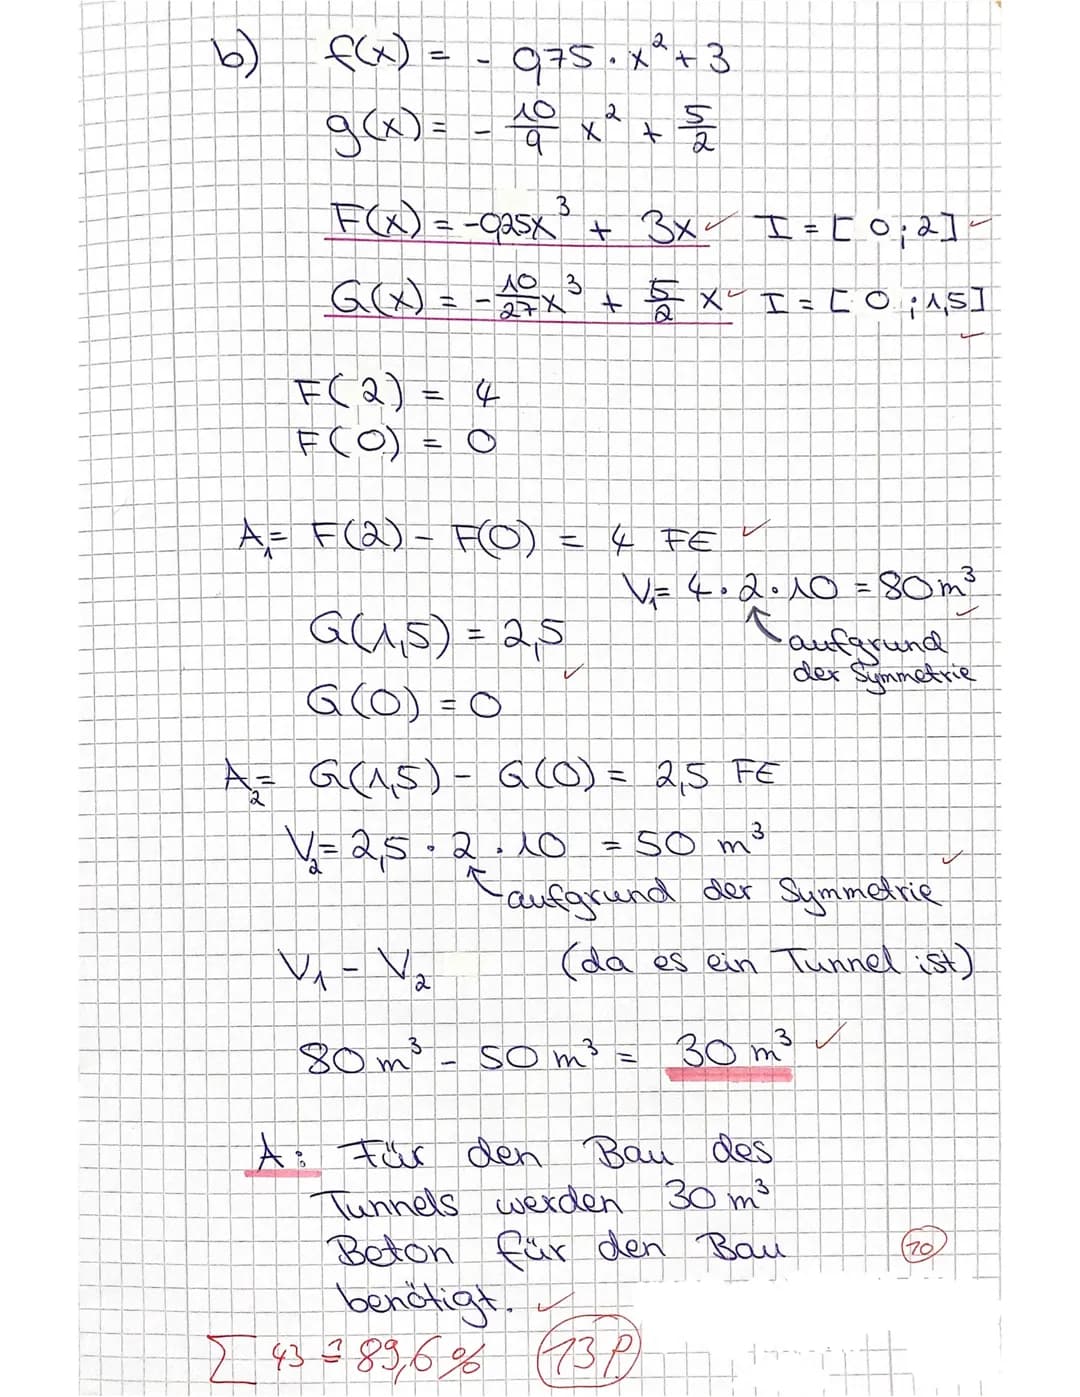 b) f(x) = - 0,75 · x² + 3
g(x) = - 10/9 x² + 5/2
F(x) = -0,25x³ + 3x ✓ I = [0;2] ✓
G(x) = - 10/27 x³ + 5/2 x ✓ I = [0;1,5] ✓
F(2) = 4
F(0) = 0
A₁= F(2) - F(0) = 4 FE ✓
V₁= 4·2·10 = 80m³ ✓
aufgrund
der Symmetrie
G(1,5) = 2,5 ✓
G(0) = 0
A₂= G(1,5) - G(0) = 2,5 FE
V₂= 2,5 · 2 · 10 = 50 m³ ✓
aufgrund der Symmetrie
V₁ - V₂ (da es ein Tunnel ist)
80 m³ - 50 m³ = 30 m³ ✓
A: Für den Bau des
Tunnels werden 30 m³
Beton für den Bau
benötigt. ✓
10
Σ 43 ≙ 89,6% 13 P